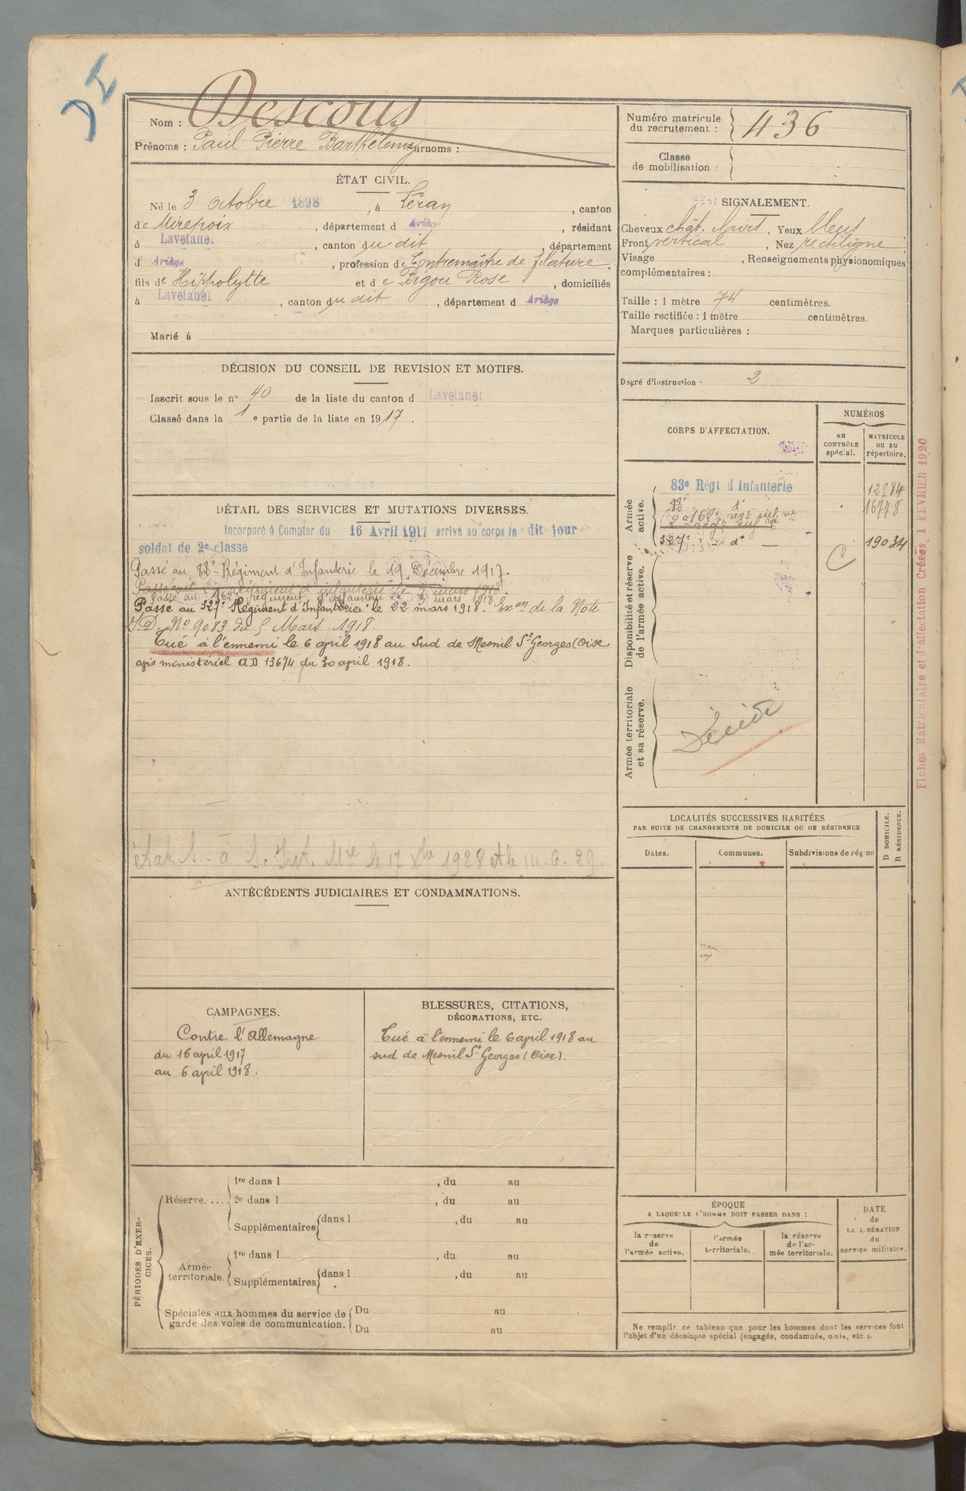 Nom : Descous
Prénoms : Paul Pierre Barthélemy Surnoms :
Numéro matricule du recrutement : 436
Classe de mobilisation :
ÉTAT CIVIL.
Né le 3 octobre 1898, à Léran, canton
de Mirepoix, département d Ariège, résidant
à Lavelanet, canton du dit, département
d Ariège, profession de Contremaître de filature,
fils de Hippolytte et de Bigou Rose, domiciliés
à Lavelanet, canton du dit, département d Ariège
Marié à
SIGNALEMENT.
Cheveux chât. Yeux bleus
Front vertical, Nez rectiligne
Visage , Renseignements physionomiques
complémentaires :
Taille : 1 mètre 74 centimètres.
Taille rectifiée : 1 mètre centimètres.
Marques particulières :
Degré d'instruction : 2
DÉCISION DU CONSEIL DE REVISION ET MOTIFS.
Inscrit sous le n° 40 de la liste du canton d Lavelanet
Classé dans la 1e partie de la liste en 1917.
CORPS D'AFFECTATION.
NUMÉROS
AU CONTRÔLE spécial.
MATRICULE OU AU répertoire.
Armée active.
83e Régt d Infanterie
88e d°
16778
327e d°
19034
C
Disponibilité et réserve de l'armée active.
Armée territoriale et sa réserve.
Décédé
Fiches Matriculaire et d'affectation Créées 1 FEVRIER 1920
DÉTAIL DES SERVICES ET MUTATIONS DIVERSES.
Incorporé à Compter du 16 Avril 1917 arrivé au corps le dit jour
soldat de 2e classe
Passé au 88e Régiment d'Infanterie le 19 Décembre 1917.
Passé au 327e Régiment d'Infanterie le 22 mars 1918. Ex on de la Note
N° 9083 du 5 Mars 1918.
Tué à l'ennemi le 6 april 1918 au Sud de Mesnil St Georges (Oise
avis ministeriel AD 13674 du 30 april 1918.
ANTÉCÉDENTS JUDICIAIRES ET CONDAMNATIONS.
LOCALITÉS SUCCESSIVES HABITÉES
PAR SUITE DE CHANGEMENTS DE DOMICILE OU DE RÉSIDENCE
Dates.
Communes.
Subdivisions de région
D DOMICILE.
R RÉSIDENCE.
CAMPAGNES.
Contre l'Allemagne
du 16 april 1917
au 6 april 1918.
BLESSURES, CITATIONS,
DÉCORATIONS, ETC.
Tué à l'ennemi le 6 april 1918 au
sud de Mesnil St Georges (Oise).
PÉRIODES D'EXERCICES.
Réserve....
1re dans l , du au
2e dans l , du au
Supplémentaires dans l , du au
Armée territoriale.
1re dans l , du au
Supplémentaires dans l , du au
Spéciales aux hommes du service de garde des voies de communication.
Du au
Du au
ÉPOQUE
A LAQUELLE L'HOMME DOIT PASSER DANS :
la réserve de l'armée active.
l'armée territoriale.
la réserve de l'armée territoriale.
DATE de LA LIBÉRATION du service militaire.
Ne remplir ce tableau que pour les hommes dont les services font
l'objet d'un décompte spécial (engagés, condamnés, omis, etc.).